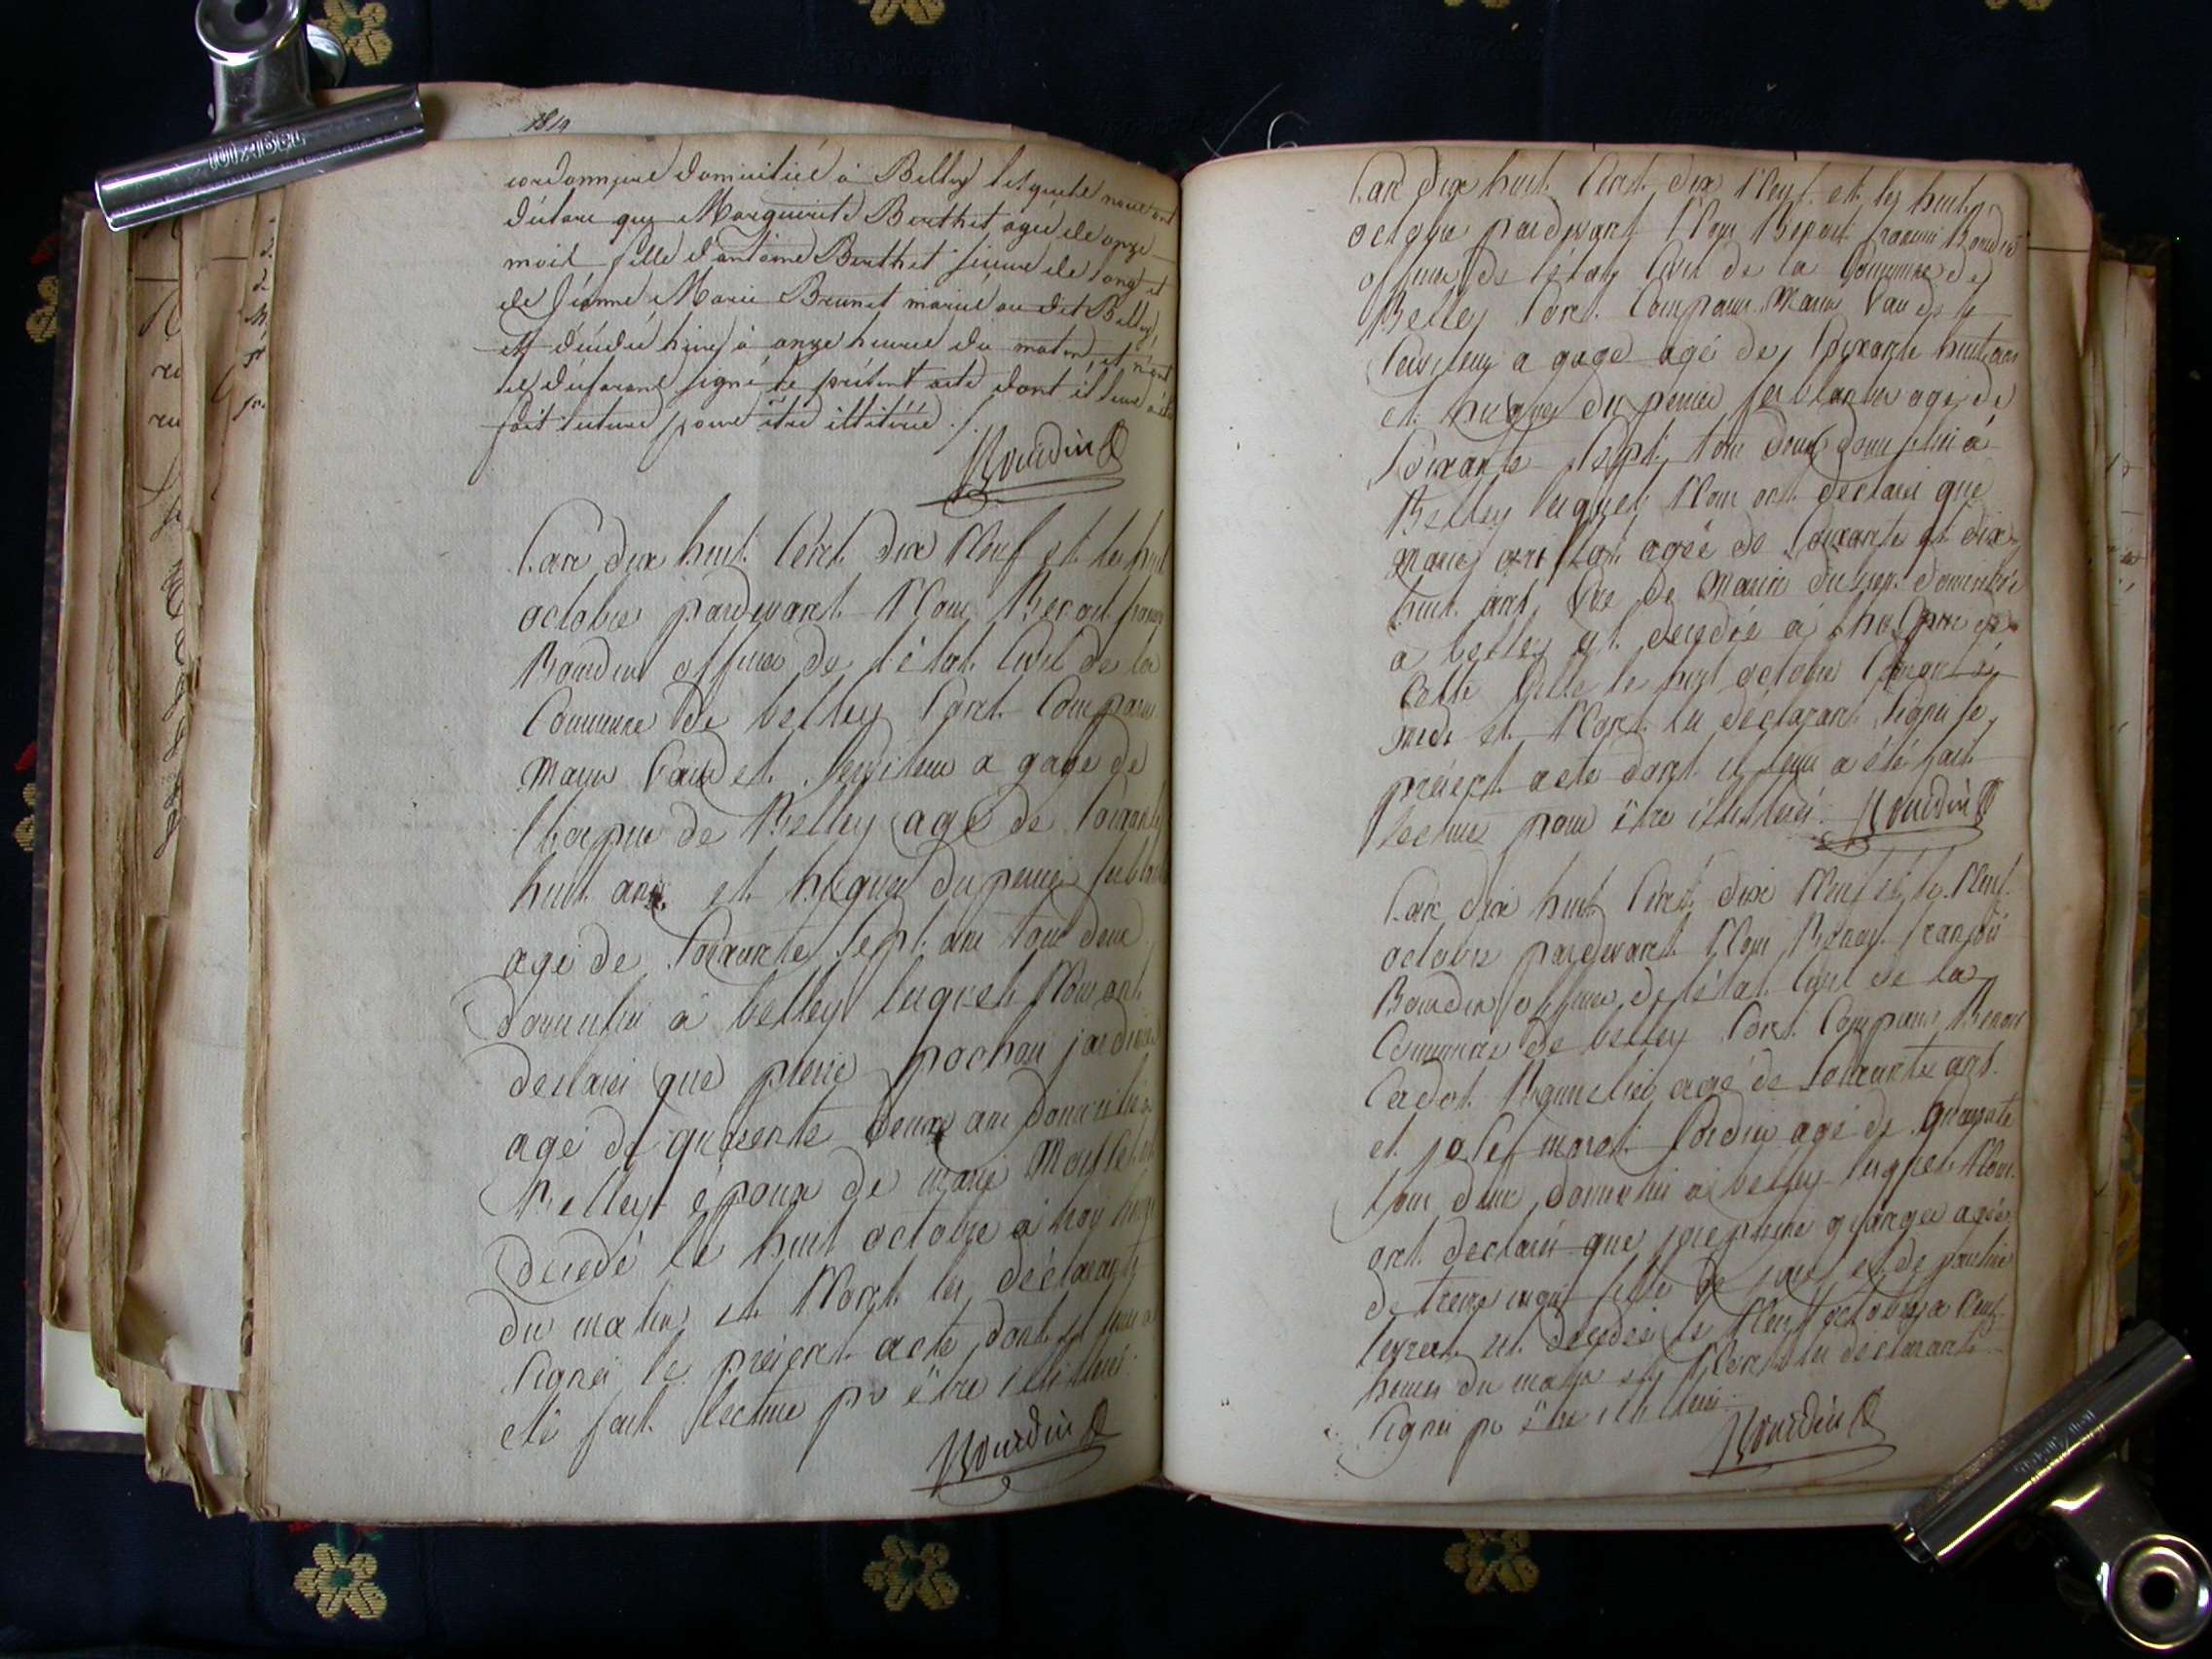 1819
cordonniere domiciliée à Belley lesquels nous ont
déclaré que Marguerite Berthet agée de onze
mois fille d'antoine Berthet sieure de long et
de Jéanne Marie Brunet mariée au dit Belley,
est décédée hier à onze heures du matin, et n'ont
les déclarans signé le présent acte dont il leur a été
fait lecture pour être illitérés ./.
Bourdin
L'an dix huit Cent dix Neuf et le huit
octobre pardevant Nous Benoit
Bourdin officier de l'état Civil de la
Commune de belley Sont Comparus
marin Vaudet serviteur a gage de
lhospice de Belley agé de Soixante
huit ans et hugues du perrier
agé de Soixante Sept ans tous deux
domiciliés à belley lesquels Nous ont
déclaré que pierre pochon jardinier
agé de quarente deux ans domicilié a
Belley époux de marie
décédé le huit octobre à
du matin et N'ont les déclarants
Signés le présent acte dont il leur a
été fait lecture pr être illitérés.
Bourdin
L'an dix huit Cent dix Neuf et le huit
octobre pardevant Nous Benoit françois Bourdin
officier de l'état Civil de la Commune de
Belley Sont Comparus Marin Vaudet
Serviteur a gage agé de Soixante huit ans
et hugues du perrier ferblantier agé de
Soixante Sept tous deux domiciliés à
Belley lesquels Nous ont déclaré que
Marie agée de Soixante et dix
huit ans Vve de Marin domiciliée
a belley est décédée à lhospice de
Cette Ville le huit octobre Courant à
midi et N'ont les déclarant Signés le
présent acte dont il leur a été fait
lecture pour être illitérés. Bourdin
L'an dix huit Cent dix Neuf et le Neuf
octobre pardevant Nous Benoit françois
Bourdin officier de l'état Civil de la
Commune de belley Sont Comparus Benoit
Cadot agé de Soixante ans
et josef moret agé de quarante
tous deux domiciliés a belley lesquels Nous
ont déclaré que josephine granger agée
de treize fille de et de pauline
est décédée le Neuf octobre a
heures du matin et N'ont les déclarants
Signés pr être illitérés.
Bourdin